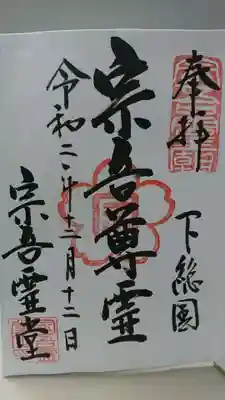 奉拝
下総国
宗吾尊霊
令和二年十二月十二日
宗吾霊堂